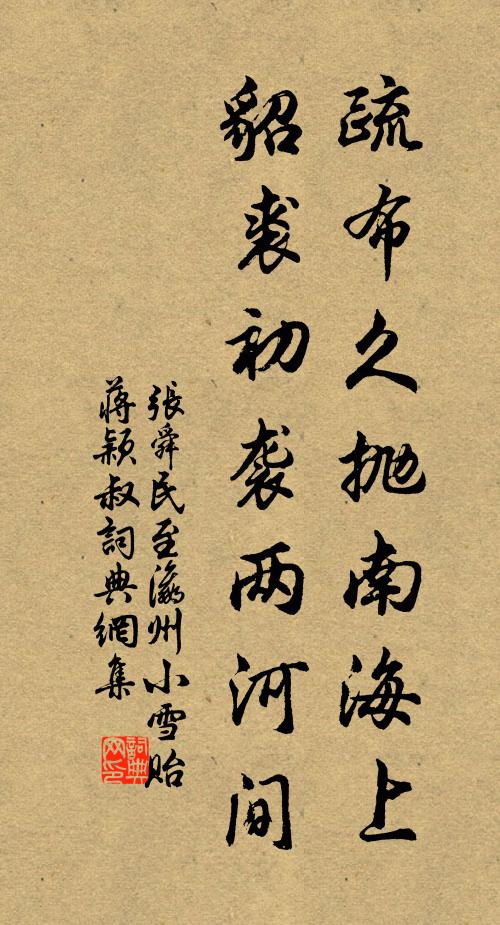 疏布久抛南海上
貂裘初袭两河间
張舜民至瀛州小雪貽
蒋颖叔詞典網集
詞典网印